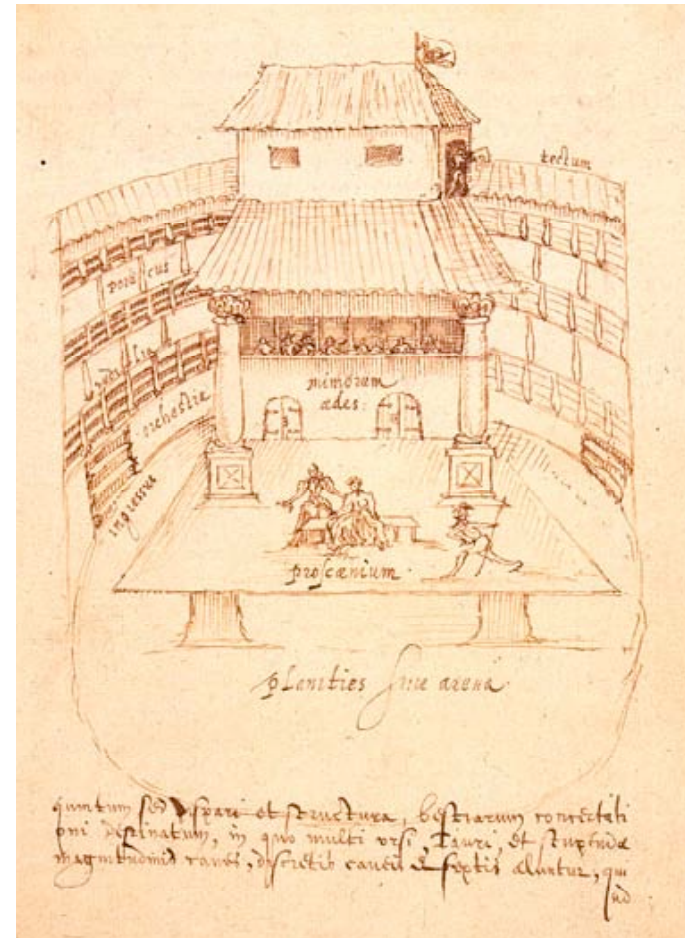 tectum
porticus
sedilia
orchestra
ingressus
mimorum
ædes:
proscænium.
planities sive arena.
quintum sed dispari et structura, bestiarum concertati
oni destinatum, in quo multi ursi, Tauri, et stupendæ
magnitudinis canes, discretis caveis et septis aluntur, qui
ad